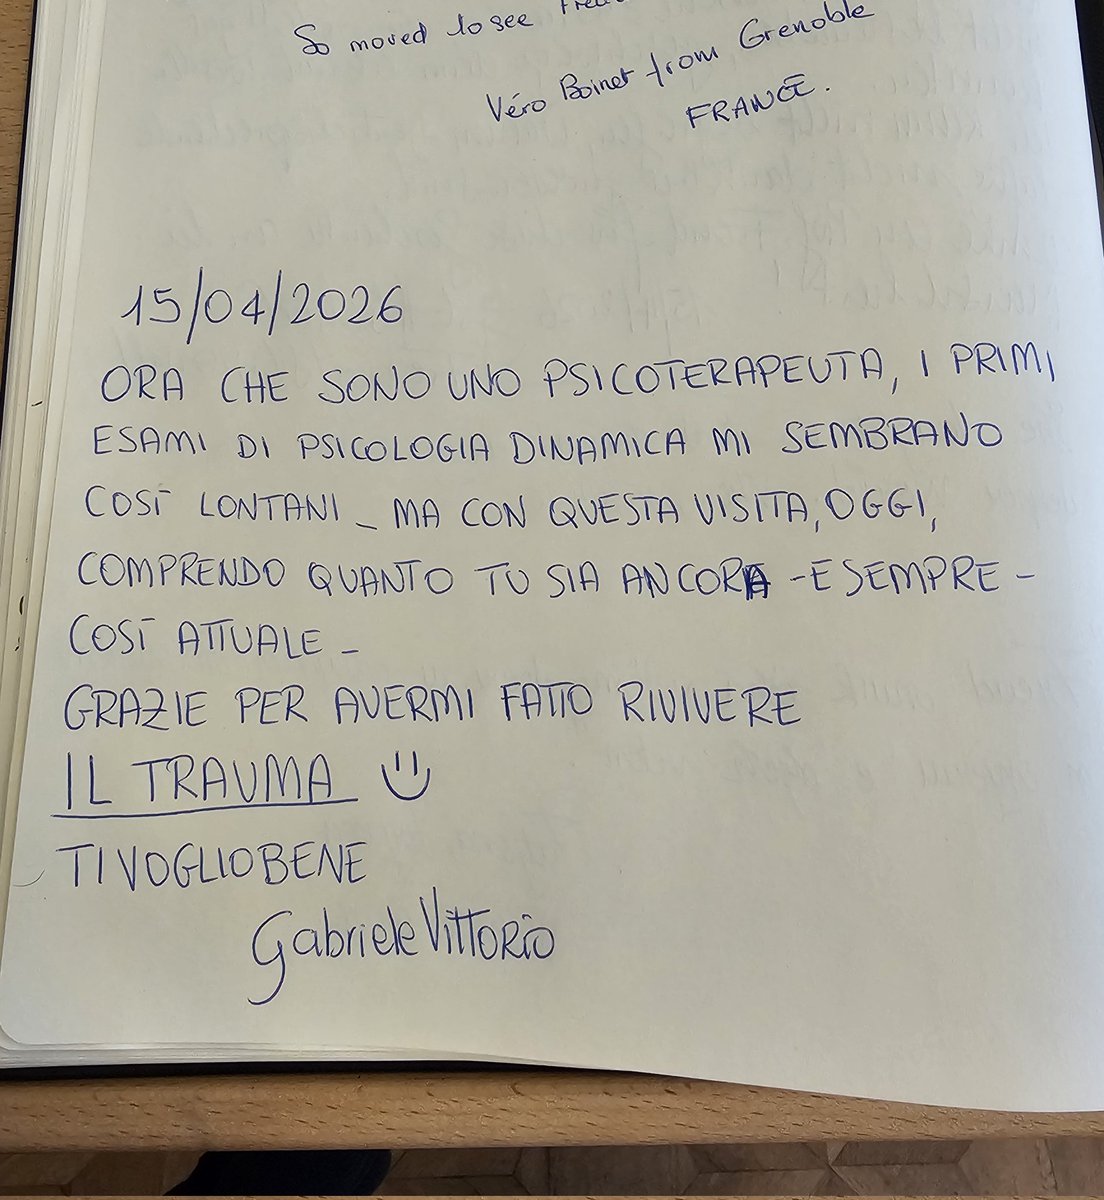 So moved to see
Véro Boinet from Grenoble
FRANCE.
15/04/2026
ORA CHE SONO UNO PSICOTERAPEUTA, I PRIMI
ESAMI DI PSICOLOGIA DINAMICA MI SEMBRANO
COSÌ LONTANI_ MA CON QUESTA VISITA, OGGI,
COMPRENDO QUANTO TU SIA ANCORA - E SEMPRE -
COSÌ ATTUALE_
GRAZIE PER AVERMI FATTO RIVIVERE
IL TRAUMA
TI VOGLIO BENE
Gabriele Vittorio